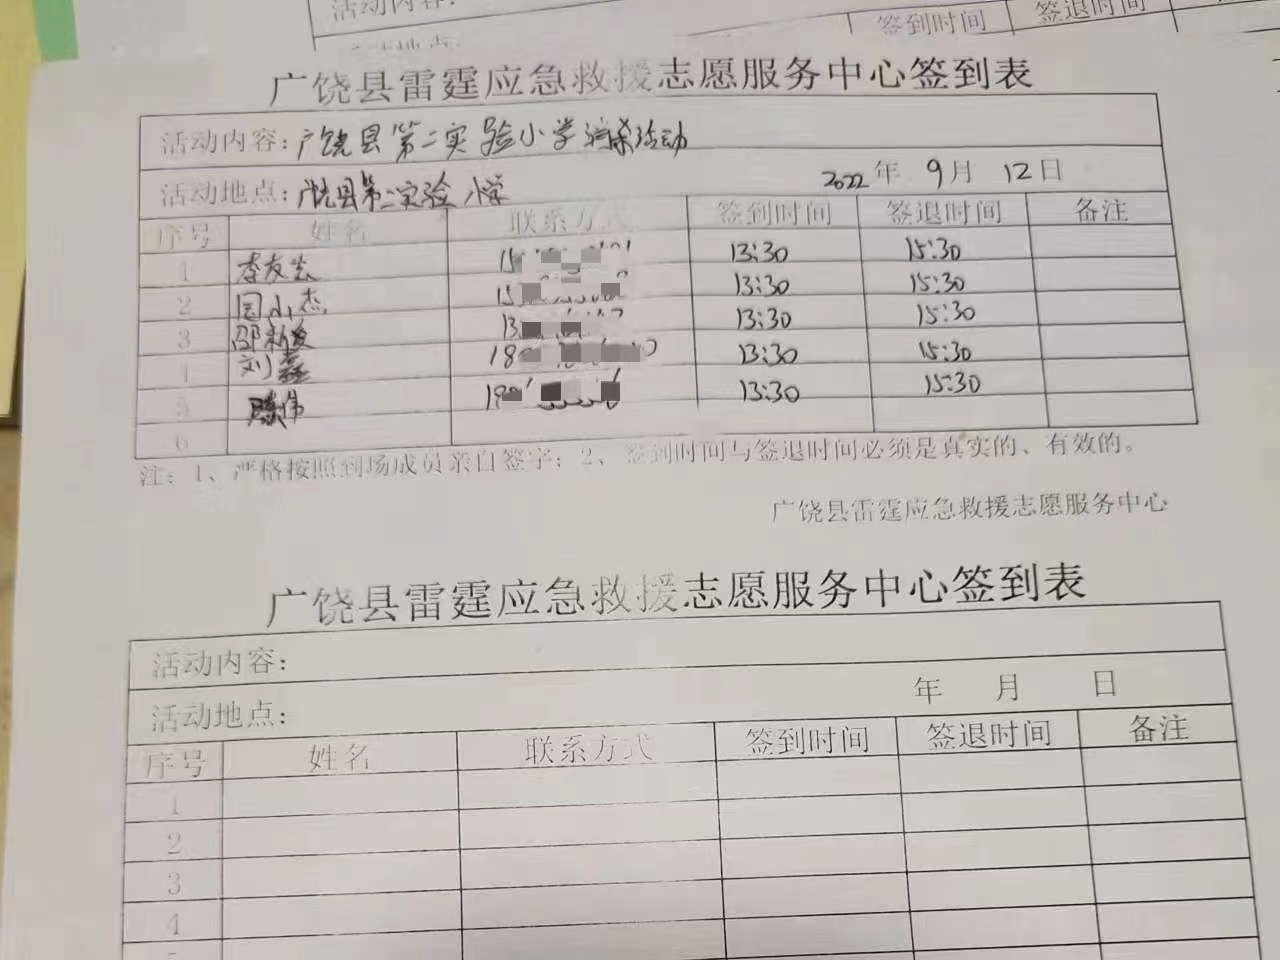 活动内容:
签到时间 签退时间
广饶县雷霆应急救援志愿服务中心签到表
活动内容:广饶县第二实验小学消杀活动
活动地点:广饶县第二实验小学 2022年9月12日
序号 姓名 联系方式 签到时间 签退时间 备注
1 李友志 13:30 15:30
2 小杰 13:30 15:30
3 邵新 13:30 15:30
刘 13:30 15:30
5 伟 13:30 15:30
6
注:1、严格按照到场成员亲自签字;2、签到时间与签退时间必须是真实的、有效的。
广饶县雷霆应急救援志愿服务中心
广饶县雷霆应急救援志愿服务中心签到表
活动内容:
活动地点: 年 月 日
序号 姓名 联系方式 签到时间 签退时间 备注
1
2
3
4